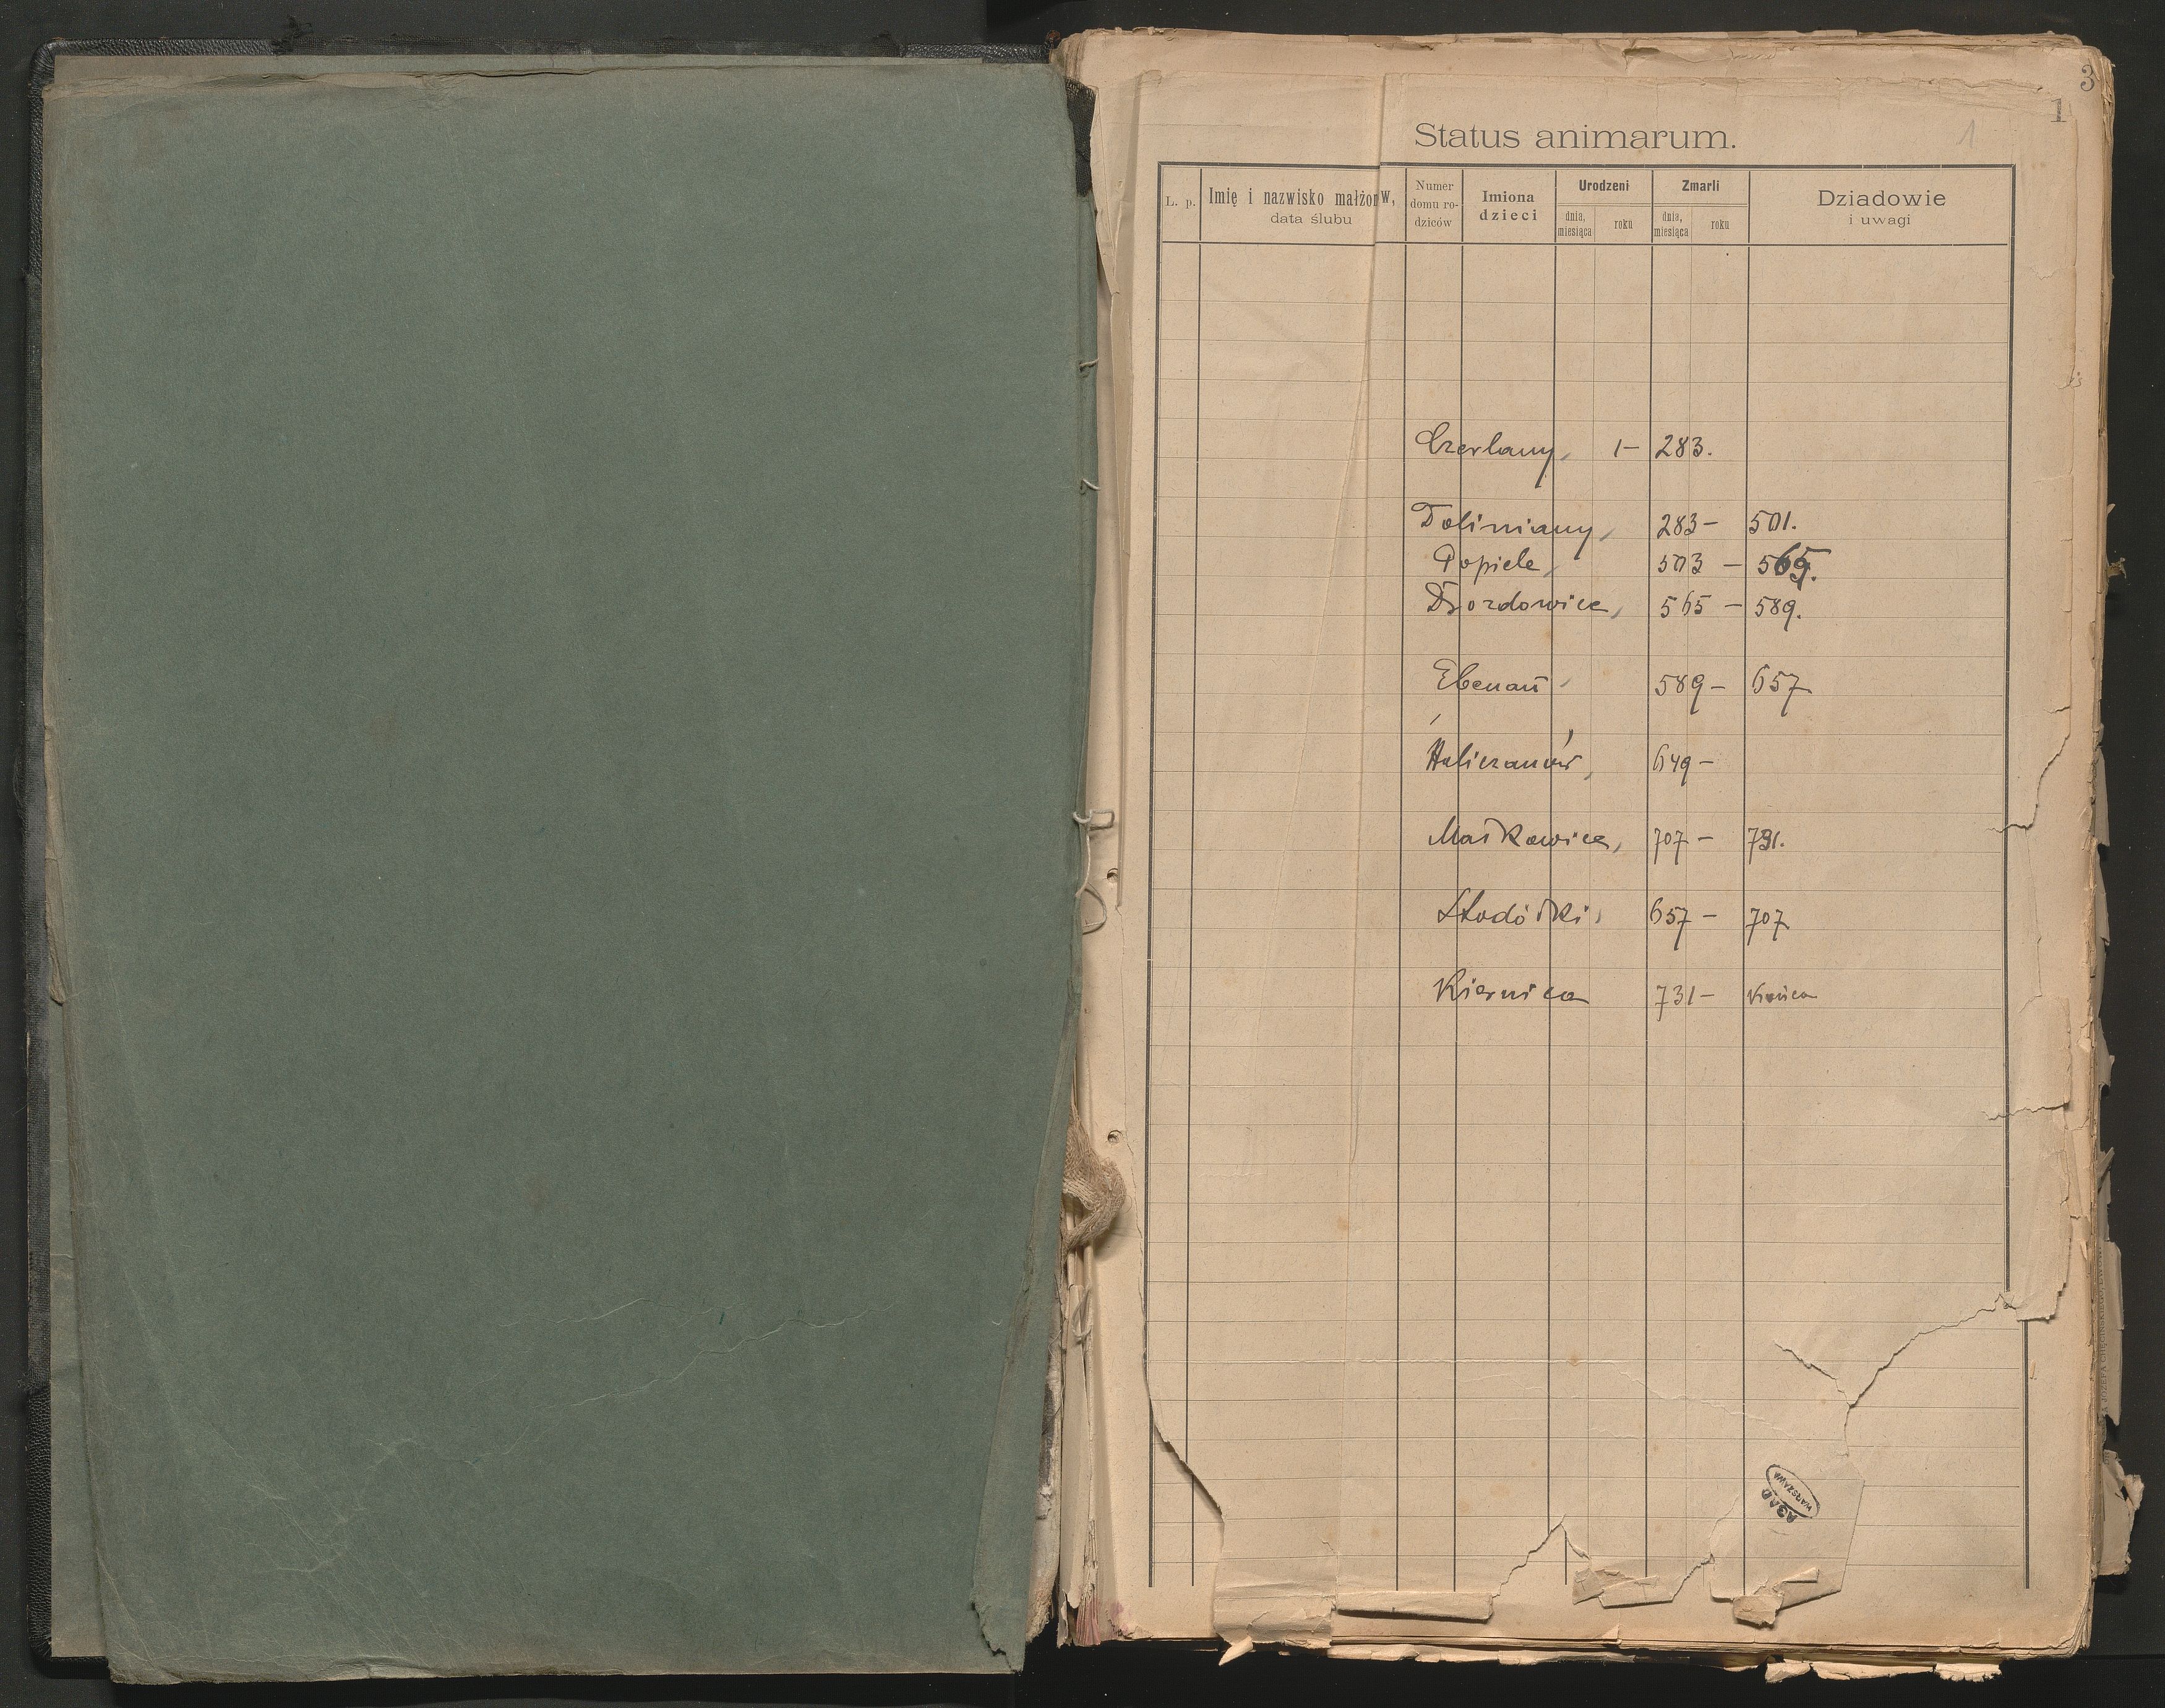 3
1
1
Status animarum.
L. p.
Imię i nazwisko małżonków,
data ślubu
Numer
domu ro-
dziców
Imiona
dzieci
Urodzeni
dnia,
miesiąca
roku
Zmarli
dnia,
miesiąca
roku
Dziadowie
i uwagi
Czerlany, 1– 283.
Doliniany, 283– 501.
Popiele, 503 – 565.
Drozdowice, 565 – 589.
Ebenau 589– 657
Haliczanów, 649–
Maśkowice, 707– 731.
Stodółki, 657– 707
Kiernica 731– Końca
AGAD
WARSZAWA